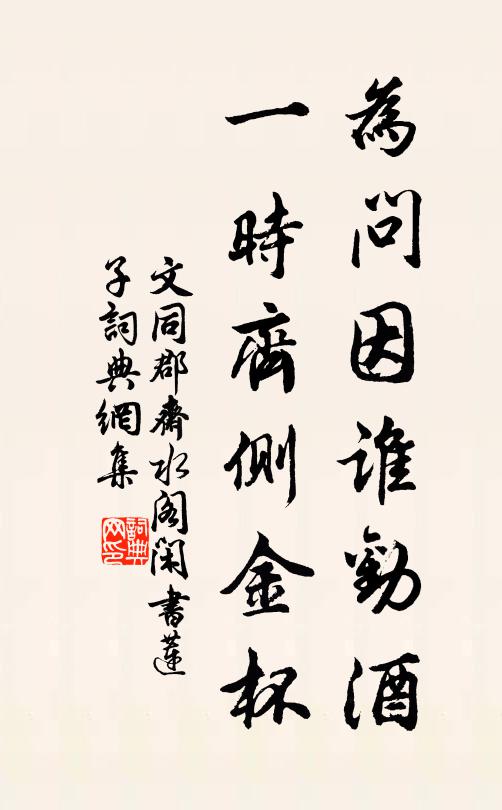 為問因誰勸酒
一時齊側金杯
文同郡齋水閣閑書蓮
子詞典網集
詞典网印